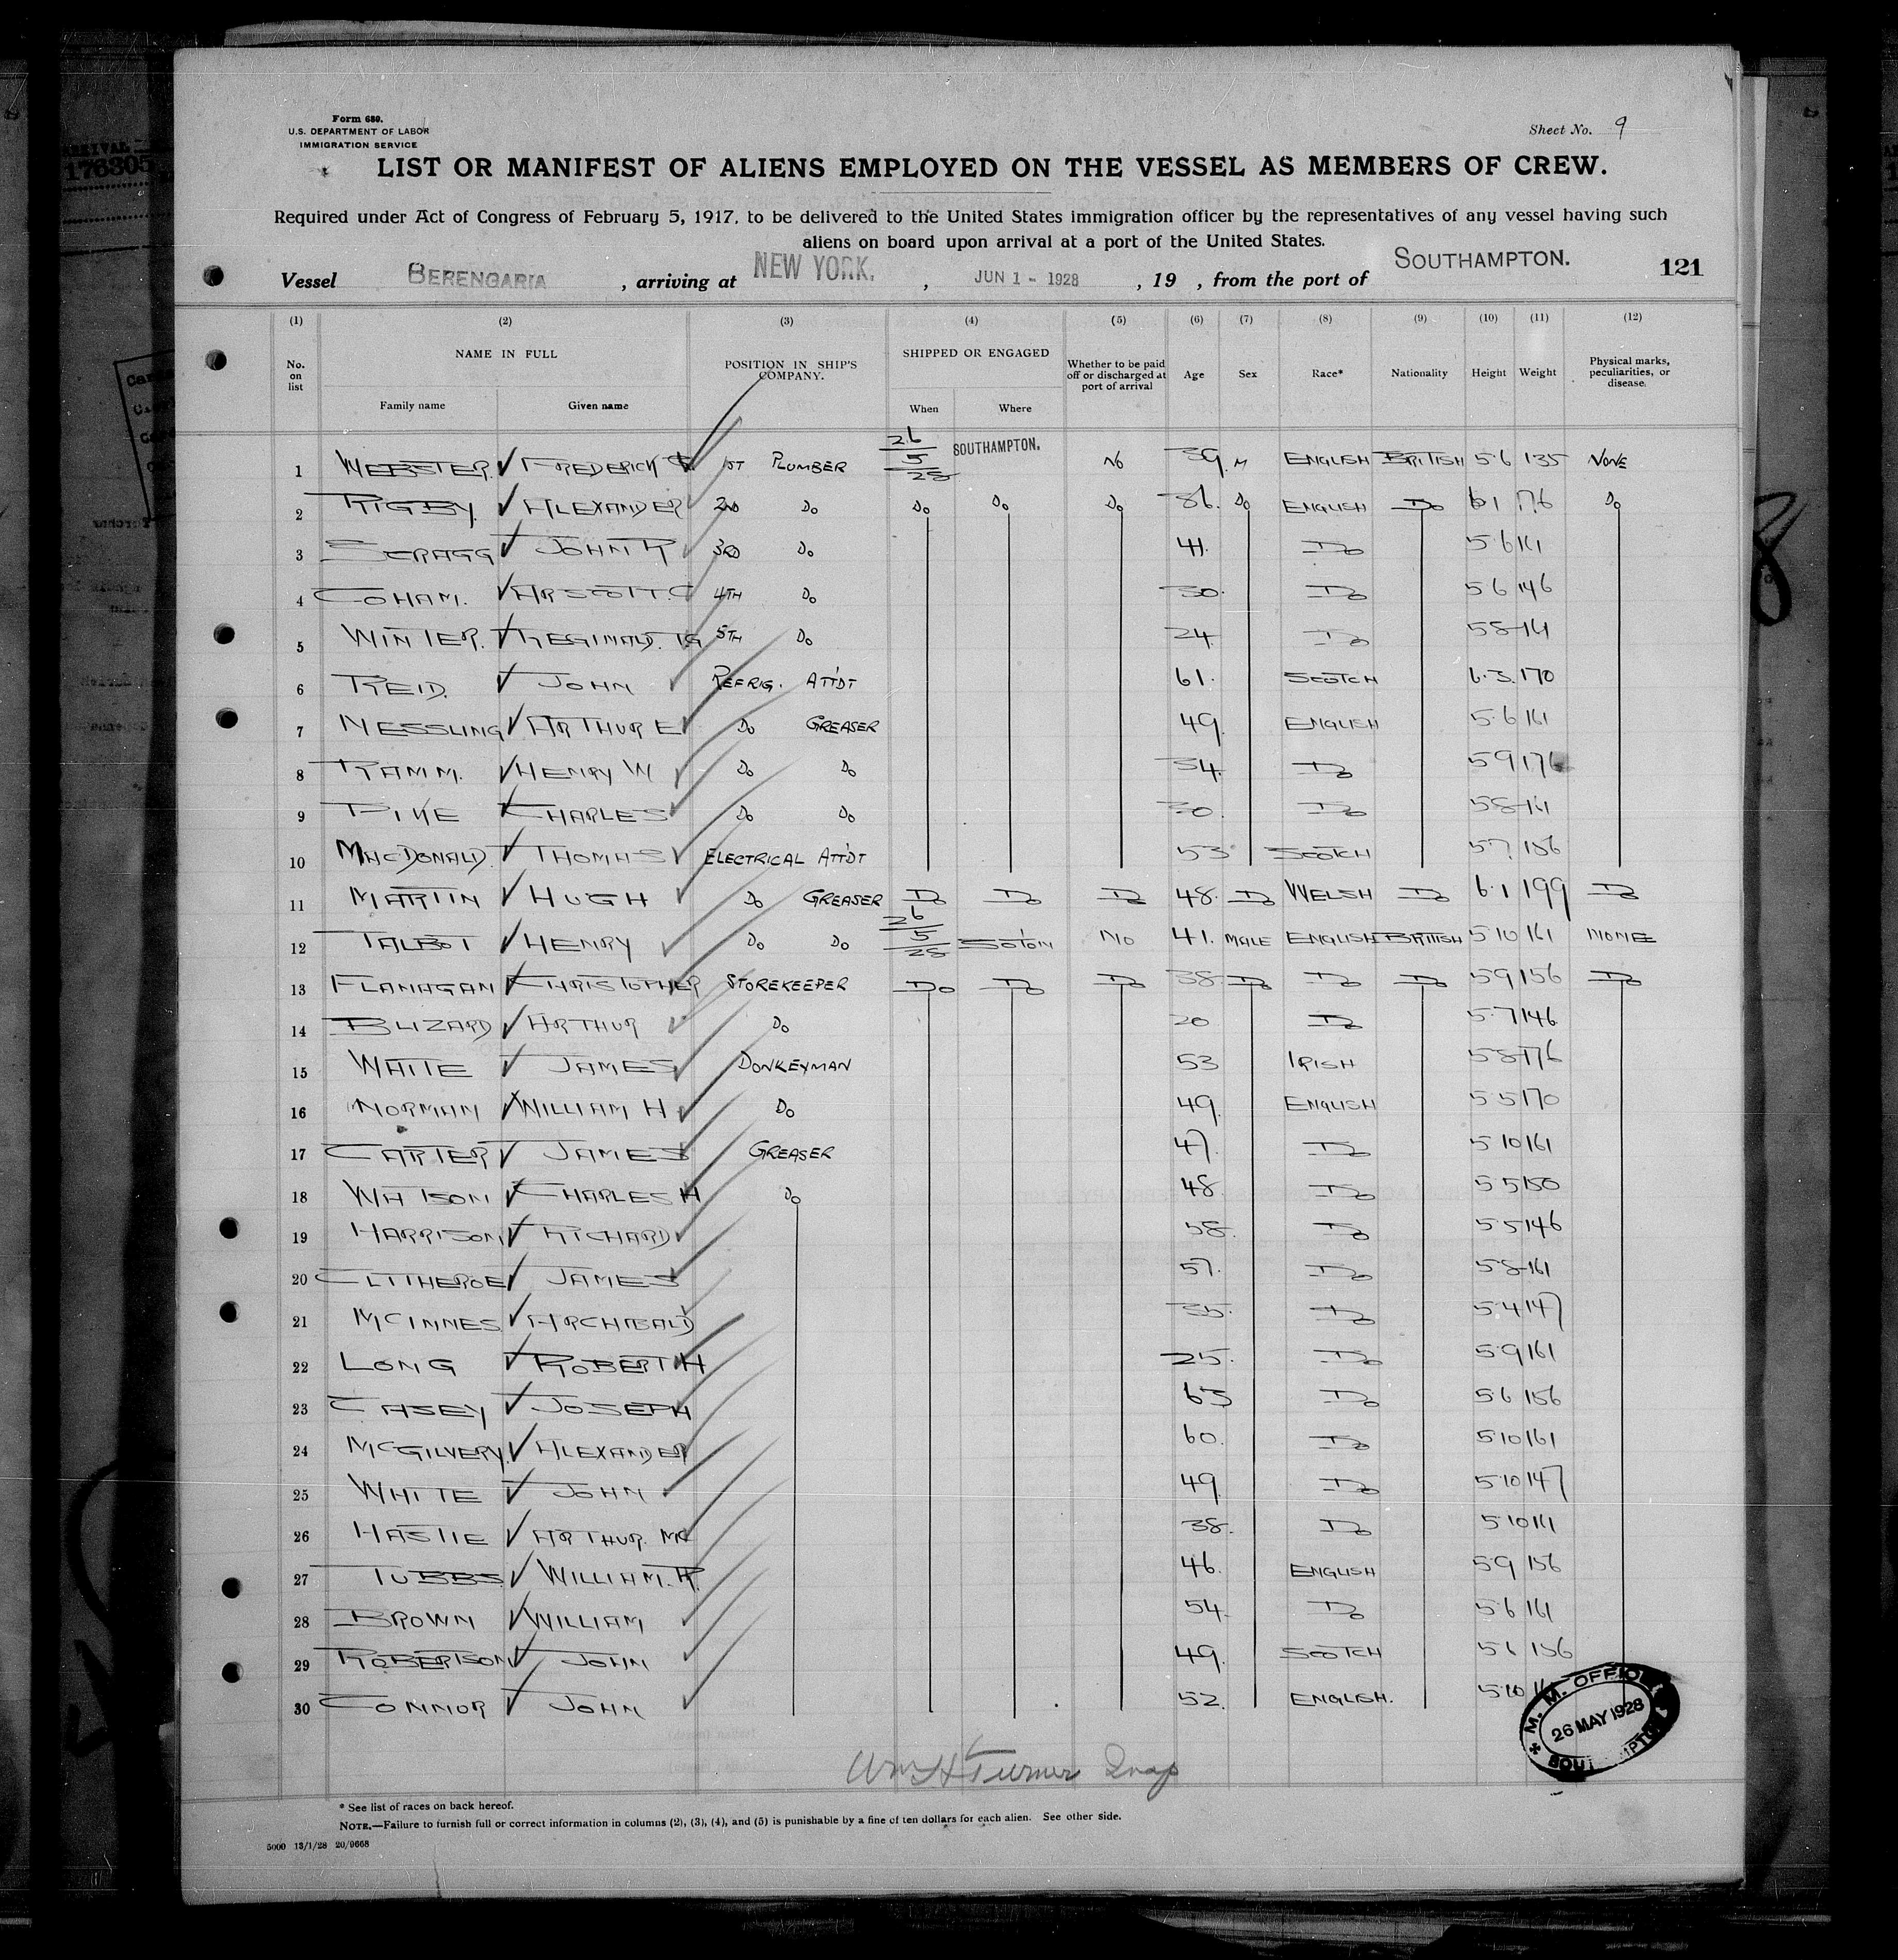 Form 680.
U.S. DEPARTMENT OF LABOR
IMMIGRATION SERVICE
Sheet No. 9
LIST OR MANIFEST OF ALIENS EMPLOYED ON THE VESSEL AS MEMBERS OF CREW.
Required under Act of Congress of February 5, 1917, to be delivered to the United States immigration officer by the representatives of any vessel having such
aliens on board upon arrival at a port of the United States.
Vessel BERENGARIA, arriving at NEW YORK., JUN 1 - 1928, 19 , from the port of SOUTHAMPTON. 121
(1) (2) (3) (4) (5) (6) (7) (8) (9) (10) (11) (12)
No. on list NAME IN FULL POSITION IN SHIP'S COMPANY. SHIPPED OR ENGAGED Whether to be paid off or discharged at port of arrival Age Sex Race* Nationality Height Weight Physical marks, peculiarities, or disease.
Family name Given name When Where
1 WEBSTER. FREDERICK 1ST PLUMBER 26/5/28 SOUTHAMPTON. NO 39. M ENGLISH BRITISH 5·6 135 NONE
2 RIGBY. ALEXANDER 2ND DO DO DO DO 36. DO ENGLISH DO 6·1 176 DO
3 SCRAGG JOHN R 3RD DO 41. DO 5·6 161
4 COHAM. ARSCOTT. C 4TH DO 30. DO 5 6 146
5 WINTER. REGINALD. 5TH DO 24 DO 5 8 161
6 REID. JOHN REFRIG. ATT'DT 61. SCOTCH 6·3 170
7 MESSLING ARTHUR E DO GREASER 49. ENGLISH 5·6 161
8 RAMM. HENRY W DO DO 34. DO 5 9 176
9 PIKE CHARLES DO DO 30. DO 5 8 161
10 MACDONALD. THOMAS ELECTRICAL ATT'DT 53 SCOTCH 5 7. 156
11 MARTIN HUGH DO GREASER DO DO DO 48. DO WELSH DO 6·1 199 DO
12 TALBOT HENRY DO DO 26/5/28 SOTON NO 41. MALE ENGLISH BRITISH 5 10 161 NONE
13 FLANAGAN CHRISTOPHER STOREKEEPER DO DO DO 38. DO DO DO 5 9 156 DO
14 BLIZARD ARTHUR DO 20 DO 5·7 146
15 WHITE JAMES DONKEYMAN 53 IRISH 5 8 176
16 NORMAN WILLIAM H DO 49. ENGLISH 5 5 170
17 CARTER JAMES GREASER 47. DO 5 10 161
18 WATSON CHARLES H DO 48 DO 5 5 150
19 HARRISON RICHARD 58. DO 5·5 146
20 CLITHEROE JAMES 57. DO 5·8 161
21 MCINNES ARCHIBALD 35. DO 5·4 147
22 LONG ROBERT H 25. DO 5·9 161
23 CASEY JOSEPH 63 DO 5·6 156
24 MCGILVERY. ALEXANDER 60. DO 5 10 161
25 WHITE JOHN 49. DO 5·10 147
26 HASTIE ARTHUR. MC 38. DO 5·10 161
27 TUBBS WILLIAM. R. 46. ENGLISH 5 9 156
28 BROWN WILLIAM 54. DO 5·6 161
29 ROBERTSON JOHN 49. SCOTCH 5 6 156
30 CONNOR JOHN 52. ENGLISH. 5·10
M. M. OFFICE
26 MAY 1928
Wm H Turner Insp
* See list of races on back hereof.
NOTE.—Failure to furnish full or correct information in columns (2), (3), (4), and (5) is punishable by a fine of ten dollars for each alien. See other side.
5000 13/1/28 20/9668